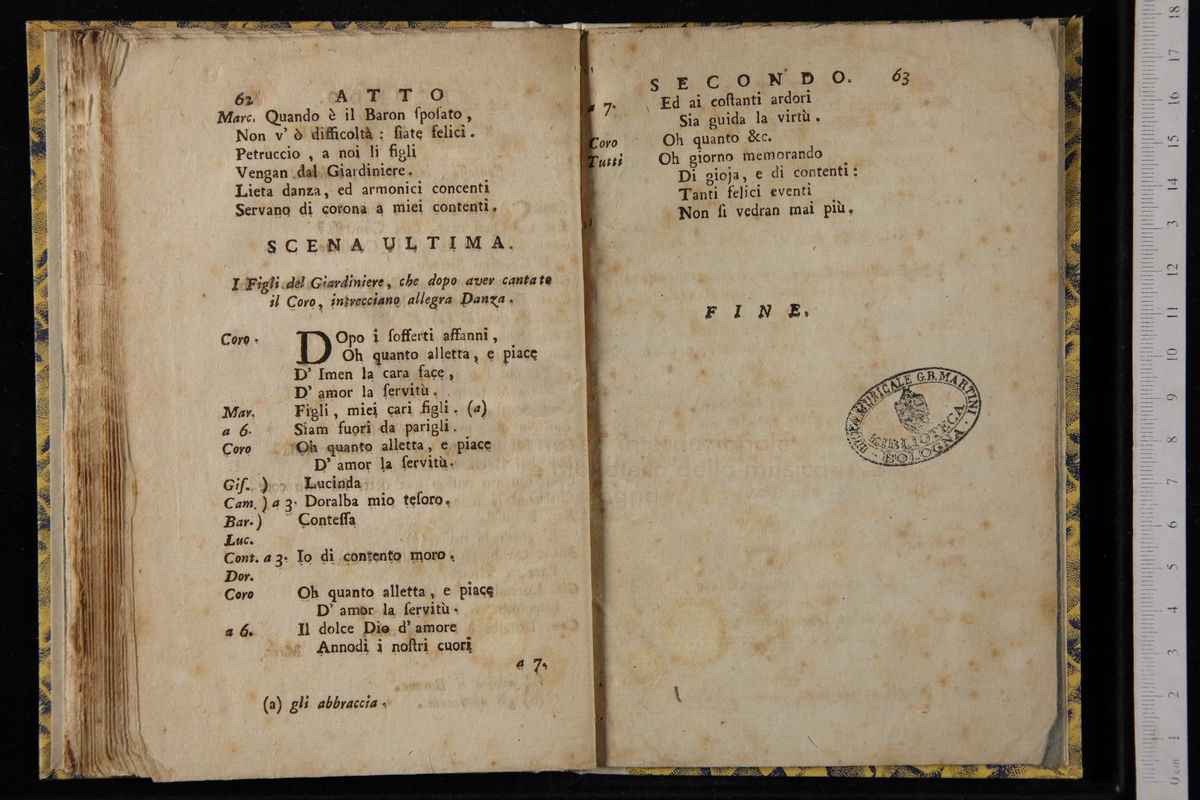 62 ATTO
Marc. Quando è il Baron ſpoſato,
Non v' ò difficoltà : ſiate felici.
Petruccio, a noi li figli
Vengan dal Giardiniere.
Lieta danza, ed armonici concenti
Servano di corona a miei contenti.
SCENA ULTIMA.
I Figli del Giardiniere, che dopo aver cantato
il Coro, intrecciano allegra Danza.
Coro. DOpo i ſofferti affanni,
Oh quanto alletta, e piace
D' Imen la cara face,
D' amor la ſervitù.
Mar. Figli, miei cari figli. (a)
a 6. Siam fuori da parigli.
Coro Oh quanto alletta, e piace
D' amor la ſervitù.
Giſ. ) Lucinda
Cam. ) a 3. Doralba mio teſoro.
Bar. ) Conteſſa
Luc.
Cont. a 3. Io di contento moro.
Dor.
Coro Oh quanto alletta, e piace
D' amor la ſervitù.
a 6. Il dolce Dio d' amore
Annodi i noſtri cuori
a 7.
(a) gli abbraccia.
SECONDO. 63
a 7. Ed ai coſtanti ardori
Sia guida la virtù.
Coro Oh quanto &c.
Tutti Oh giorno memorando
Di gioja, e di contenti:
Tanti felici eventi
Non ſi vedran mai più.
FINE.
LICEO MUSICALE G.B. MARTINI
BIBLIOTECA
BOLOGNA